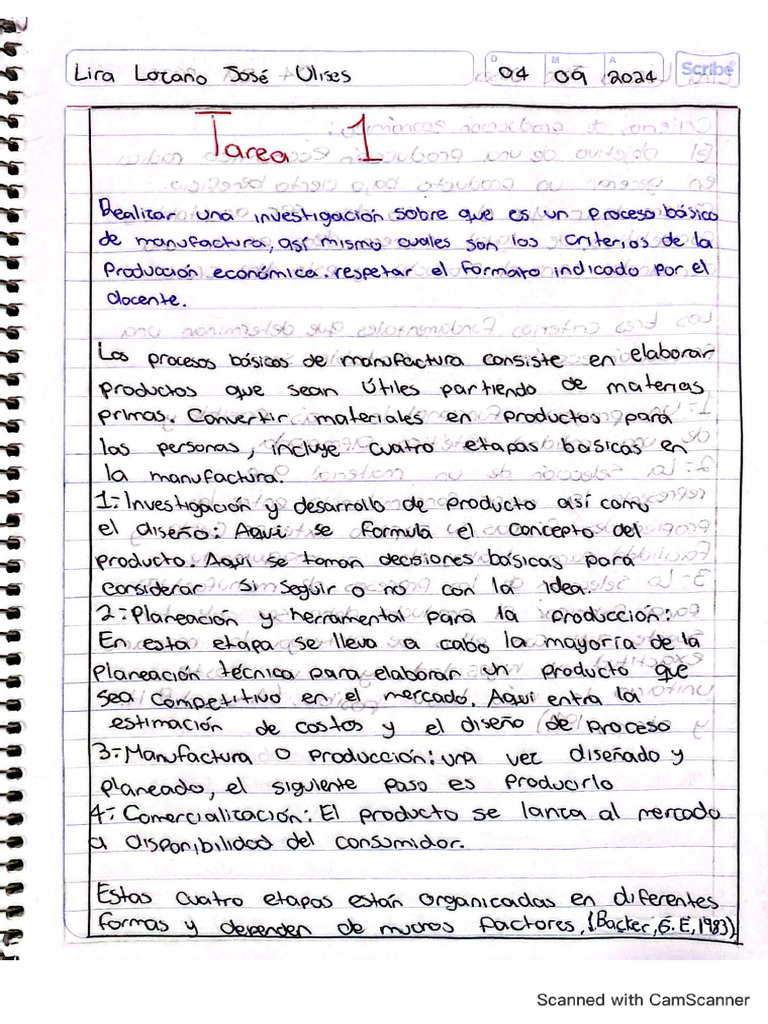 Lira Lozano José Ulises
D 04 M 09 A 2024 Scribe
Tarea 1
Realizar una investigación sobre que es un proceso básico
de manufactura, así mismo cuales son los criterios de la
Producción económica. respetar el formato indicado por el
docente.
Los procesos básicos de manufactura consiste en elaborar
productos que sean útiles partiendo de materias
primas. Convertir materiales en productos para
las personas, incluye cuatro etapas básicas en
la manufactura.
1:- Investigación y desarrollo de producto así como
el diseño: Aquí se formula el concepto del
producto. Aquí se toman decisiones básicas para
considerar si seguir o no con la idea.
2:- Planeación y herramental para la producción:
En esta etapa se lleva a cabo la mayoría de la
Planeación técnica para elaborar un producto que
sea competitivo en el mercado. Aquí entra la
estimación de costos y el diseño de proceso
3:- Manufactura o producción: una vez diseñado y
planeado, el siguiente paso es producirlo
4:- Comercialización: El producto se lanza al mercado
a disponibilidad del consumidor.
Estas cuatro etapas están organizadas en diferentes
formas y dependen de muchos factores, (Backer, G. E, 1983)
Scanned with CamScanner